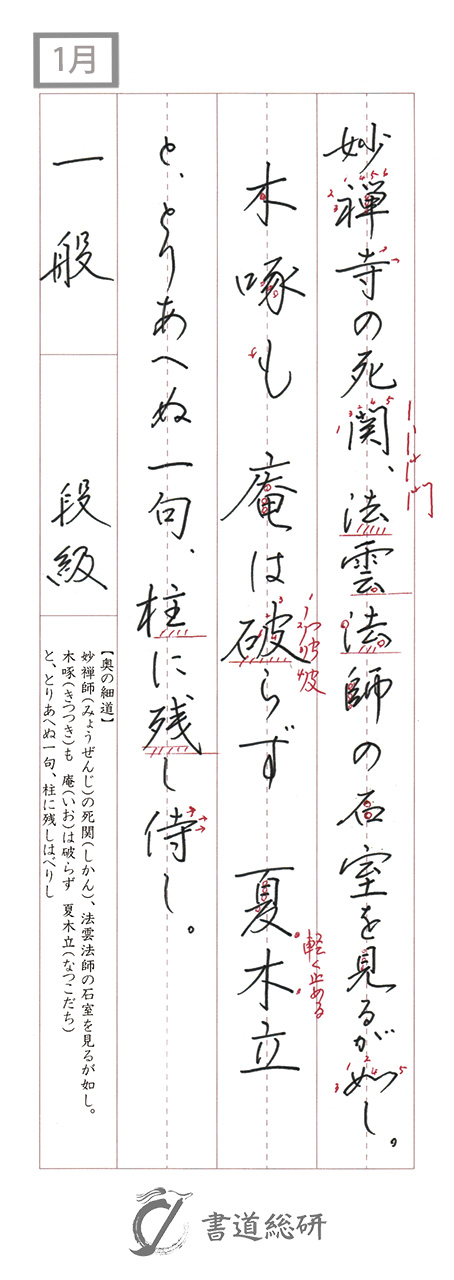 1月
妙禅寺の死関、法雲法師の石室を見るが如し。
木啄も 庵は破らず 夏木立
と、とりあへぬ一句、柱に残し侍し。
軽く止める
一般 段級
【奥の細道】
妙禅師(みょうぜんじ)の死関(しかん)、法雲法師の石室を見るが如し。
木啄(きつつき)も 庵(いお)は破らず 夏木立(なつこだち)
と、とりあへぬ一句、柱に残しはべりし
書道総研